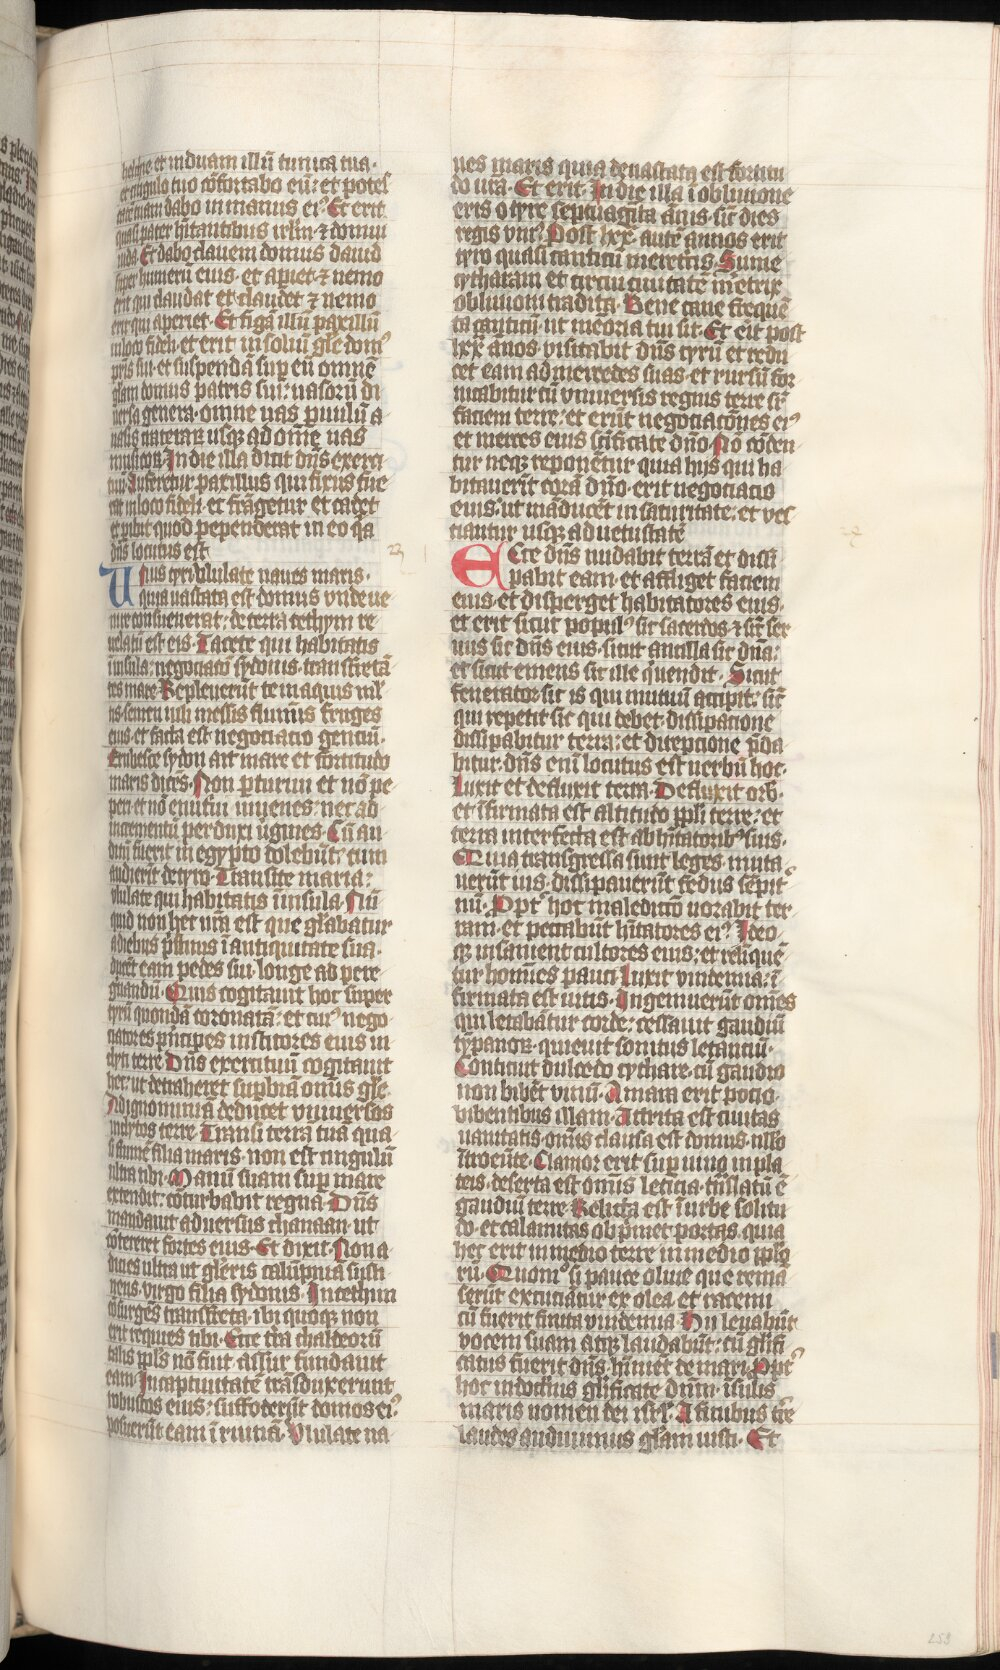 helchie et induam illū tunica tua·
et cingulo tuo cōfortabo eū: et potes
tatē tuam dabo in manus eiꝰ Et erit
quasi pater hītantibus irlm̄ ⁊ domui
iuda· Et dabo clauem domus dauid
super humerū eius· et aꝑiet ⁊ nemo
erit qui claudat et claudet ⁊ nemo
erit qui aperiet· Et figā illū paxillū
in loco fideli· et erit in soliū gl̄e domꝰ
pr̄is sui· et suspendā suꝑ eū omnē
glām domus patris sui: uasorū di
uersa genera· omne uas ꝑuulū a
uasis craterarꝝ usqꝫ ad om̄e uas
musicorꝝ In die illa dicit dn̄s exerci
tuū· Auferetur paxillus qui fixus fue
rat in loco fideli· et frāgetur et cadet
et ꝑibit quod pependerat in eo q̄a
dn̄s locutus est 23
Onus tyri Vlulate naues maris·
quia uastata est domus vnde ue
nire consueuerat: de terra cethym re
uelatū est eis· Tacete qui habitatis
in insula: negociatio sydonis transfretā
tes mare· Repleuerūt te in aquis ml̄
tis· semen nili messis flumīs fruges
eius· et facta est negociacio gentiū·
Erubesce sydon ait mare et fortitudo
maris dicēs· Non ꝑturiui et nō pe
peri et nō enutriui iuuenes· nec ad
incrementū perduxi ūgines Cū au
ditū fuerit in egypto dolebūt cum
audierit de tyro· Transite maria:
vlulate qui habitatis ī insula· Nū
quid non hec vr̄a est que gl̄abatur
a diebus pristinis ī antiquitate sua·
ducēt eam pedes sui· longe ad pere
grinandū· Quis cogitauit hoc super
tyrū quondā coronatā: et cuiꝰ nego
ciatores prīcipes institores eius in
clyti terre Dn̄s exercituū cogitauit
hec: ut detraheret suꝑbiā omīs gl̄e
Ad ignominiā deducet vniuersos
inclytos terre Transi terrā tuā qua
si flumē filia maris· non est cingulū
ultra tibi· Manū suam suꝑ mare
extendit: cōturbabit regna· Dn̄s
mandauit aduersus chanaan· ut
cōtereret fortes eius· Et dixit· Non a
dicies ultra ut gl̄eris calūpniā susti
nens· virgo filia sydonis· In cethym
cōsurges transfreta· ibi quoqꝫ non
erit requies tibi· Ecce tr̄a chaldeorū
talis pp̄ls nō fuit· assur fundauit
eam· In captiuitatē trāsduxerunt
robustos eius: suffoderūt domos eiꝰ
posuerūt eam ī ruinā· Vlulate na
ues maris quia deuastata est fortitu
do vr̄a· Et erit· In die illa ī obliuione
eris o tyre septuaginta ānis· sic̄ dies
regis vniꝰ· Post lxx autē annos erit
tyro quasi canticū meretrīs· Sume
cytharam et circui ciuitatē meretrix
obliuioni tradita· Bene cane freqūe
ta canticū· ut meoria tui sit Et erit post
lxx ānos visitabit dn̄s tyrū et redu
cet eam ad mercedes suas· et rursū for
nicabitur cū vniuersis regnis terre sr̄
faciem terre: et erūt negociacōnes eiꝰ
et merces eius sc̄ificate dn̄o· Nō cōden
tur neqꝫ reponētur quia hys qui ha
bitauerīt corā dn̄o· erit negociacio
eius: ut māducēt in saturitate: et ves
tiantur usqꝫ ad uetustatē
Ecce dn̄s nudabit terrā et dissi
pabit eam· et affliget faciem
eius· et disperget habitatores eius·
et erit sicut populꝰ sic sacerdos ⁊ sic̄ ser
uus sic dn̄s eius· sicut ancilla sic dn̄a:
et sicut emens sic ille q̄ uendit· Sicut
fenerator sic is qui mutuū accipit: sic̄
qui repetit sic qui debet: dissipacione
dissipabitur terra: et direpcione p̄da
bitur· dn̄s enī locutus est uerbū hoc·
Luxit et defluxit terra· Defluxit orb̄·
et īfirmata est altitudo pp̄li terre: et
terra interfecta est ab hītatoribꝰ suis·
Quia transgressi sunt leges· muta
uerūt ius· dissipauerūt fedus sēpit
nū· Propt hoc maledictō uorabit ter
ram· et peccabūt hītatores eiꝰ Ideo
qꝫ insanient cultores eius: et relinquē
tur homīes pauci Luxit vindemia: ī
firmata est uitis· Ingemuerūt omēs
qui letabātur corde: cessauit gaudiū
tympanorꝝ· quieuit sonitus letanciū·
Conticuit dulcedo cythare· cū gaudio
non bibēt vinū· Amara erit pocio
bibentibus illam· Attrita est ciuitas
uanitatis· om̄is clausa est domus· nllo
ītroeūte· Clamor erit suꝑ vino in pla
teis· deserta est om̄is leticia· trāslatū ē
gaudiū terre Relicta est ī urbe solitu
do· et calamitas opprimet portas· quia
hec erit in medio terre in medio pp̄lo
rū· Quomꝰ si pauce oliue que rema
serūt excutiātur ex olea· et racemi
cū fuerit finita vindemia Hii leuabūt
vocem suam atqꝫ laudabūt: cū gl̄ifi
catus fuerit dn̄s· hinniēt de mari· Propt
hoc in doctrinis gl̄ificate dn̄m· ī insulis
maris nomen dei isrl̄· A finibus tr̄e
laudes audiuimus gl̄am iusti· Et
24
253